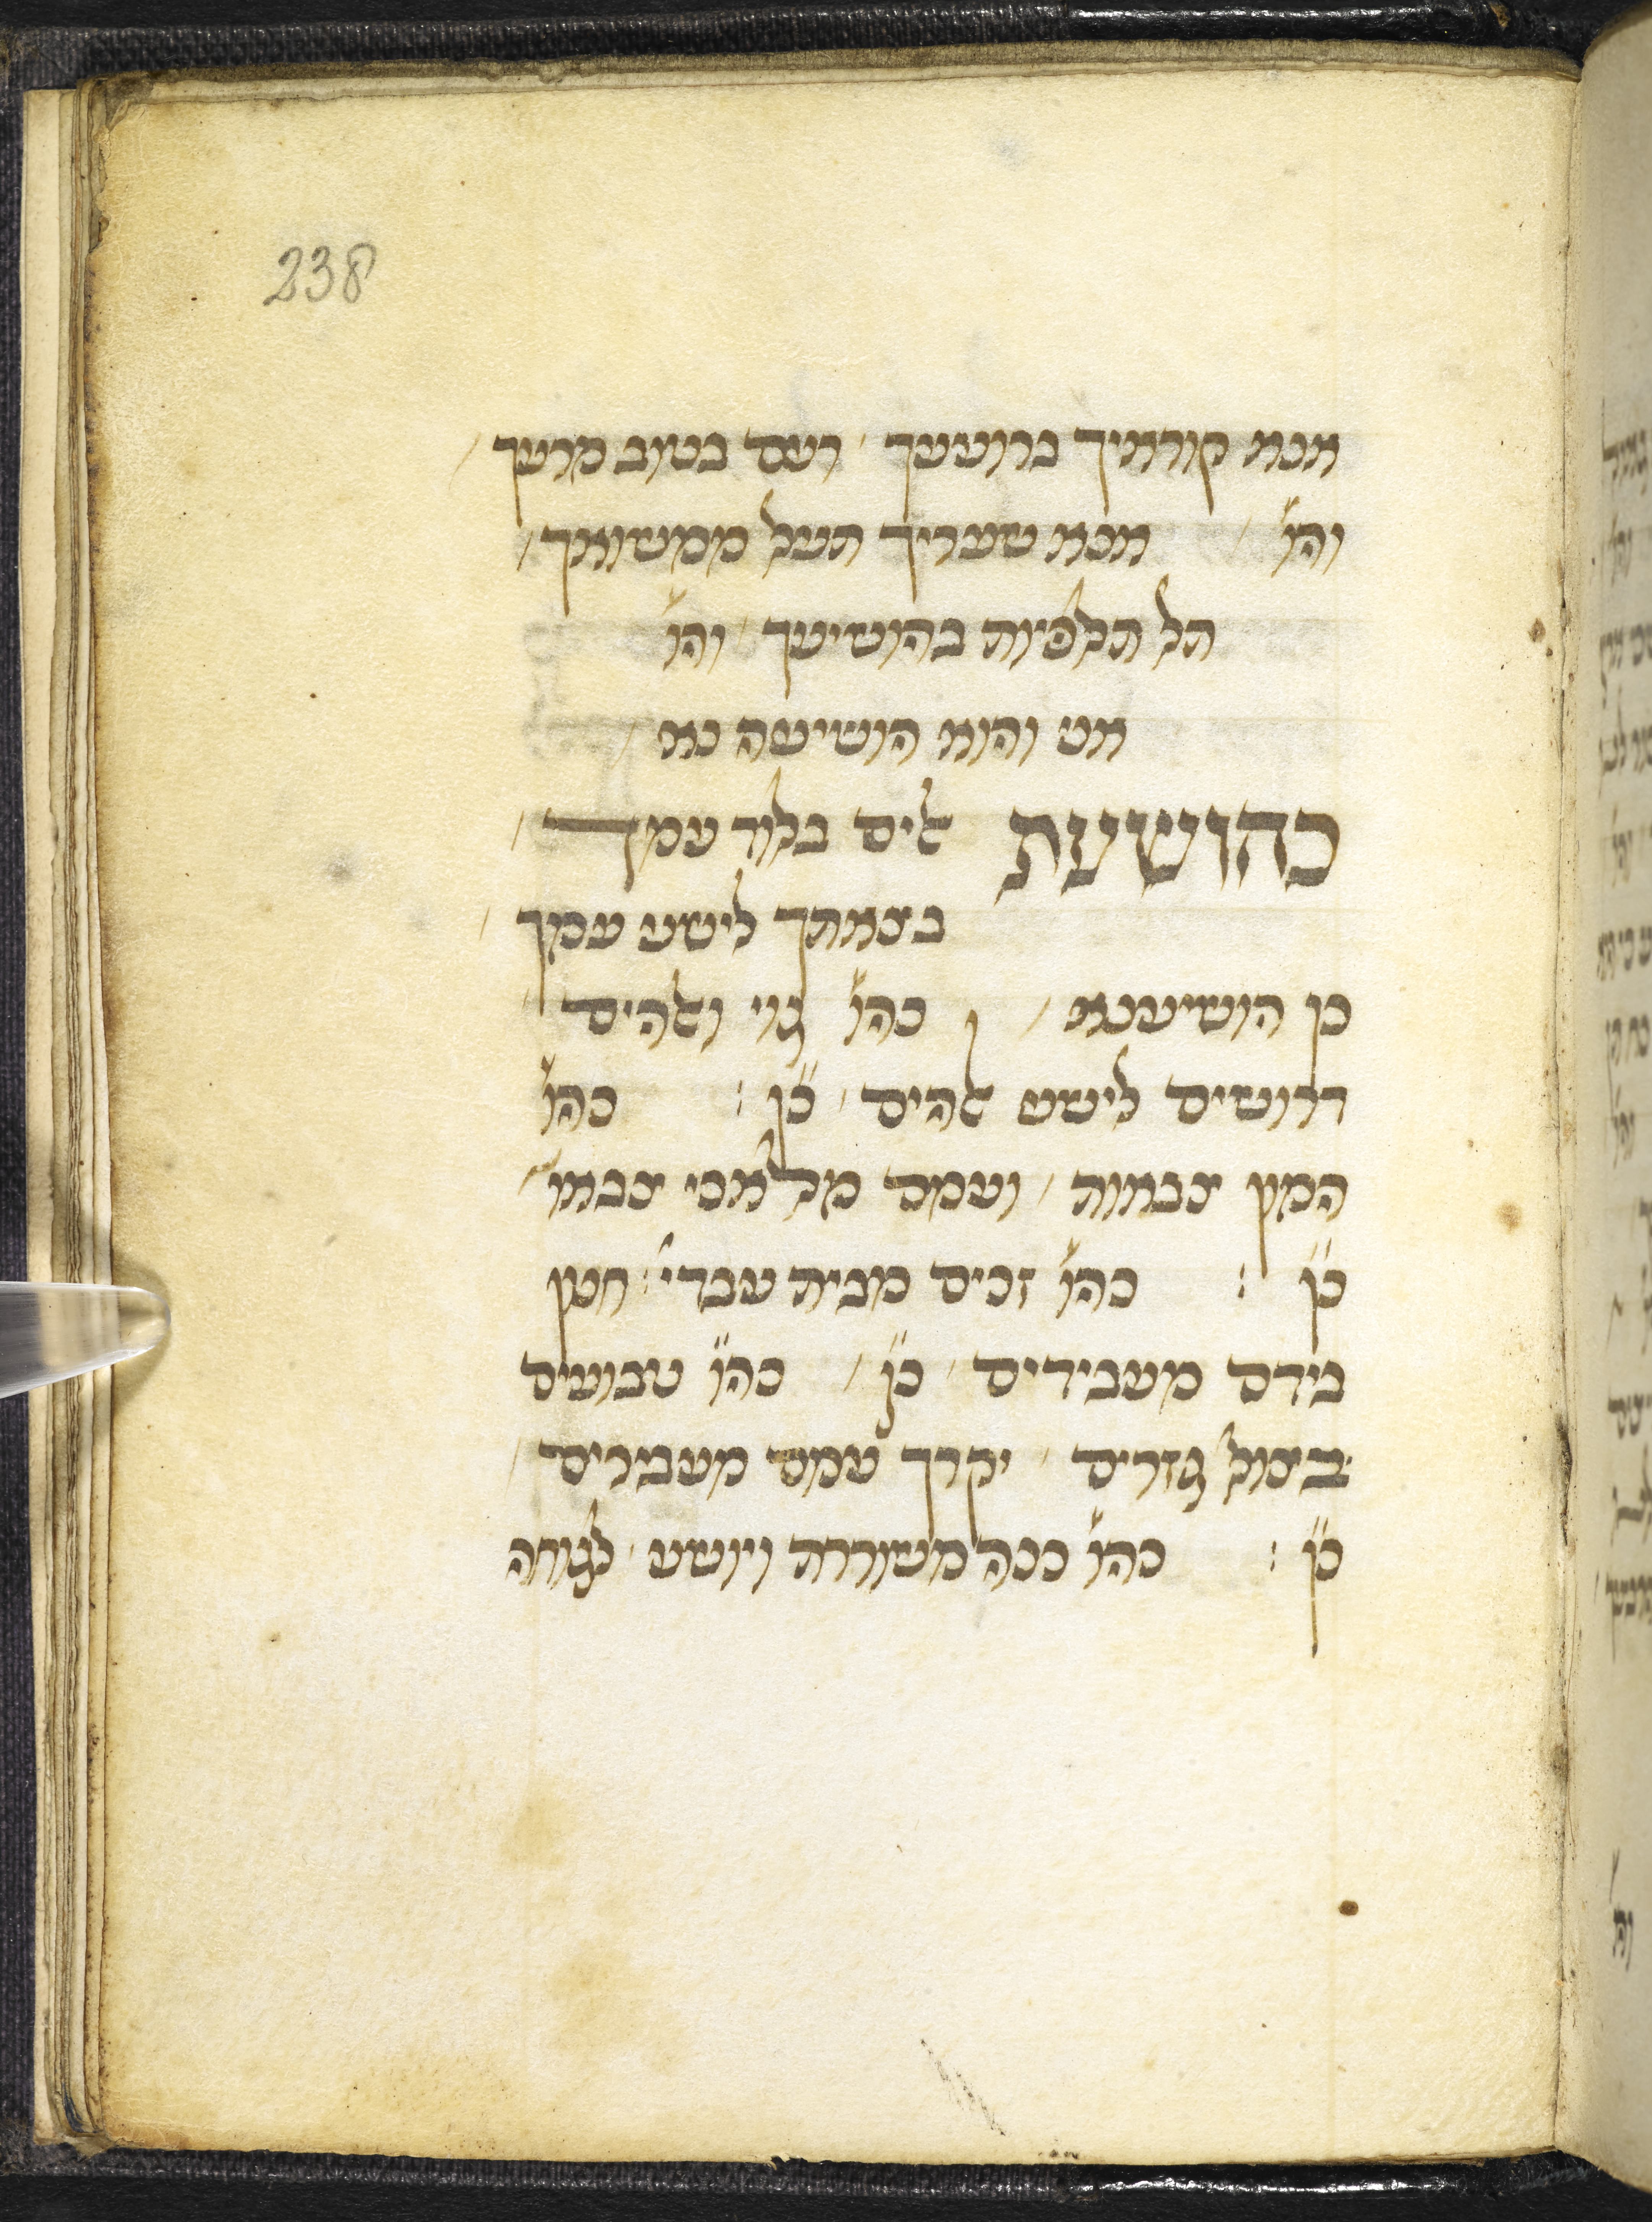 אנא קוראיך ברועעך / רעם בטוב מרעך /
והו׳ / אנא שעריך תעל ממשואך /
תל תלפיות בהושיעך / והו׳
אני והוא הושיעה נא /
כהושעת אלים בלוד עמך /
בצאתך לישע עמך /
כן הושיענא / כהו׳ גוי ואלהים
דרושים לישע אלהים / כן : כהו׳
המון צבאות / ועמם מלאכי צבאו׳ /
כן : כהו׳ זכים מבית עבדי׳ : חנון
בידם מעבידים / כן / כהו׳ טבועים
בצול גזרים / יקרך עמם מעבירים /
כן : כהו׳ כנה משוררת ויושע / לגוחה
238